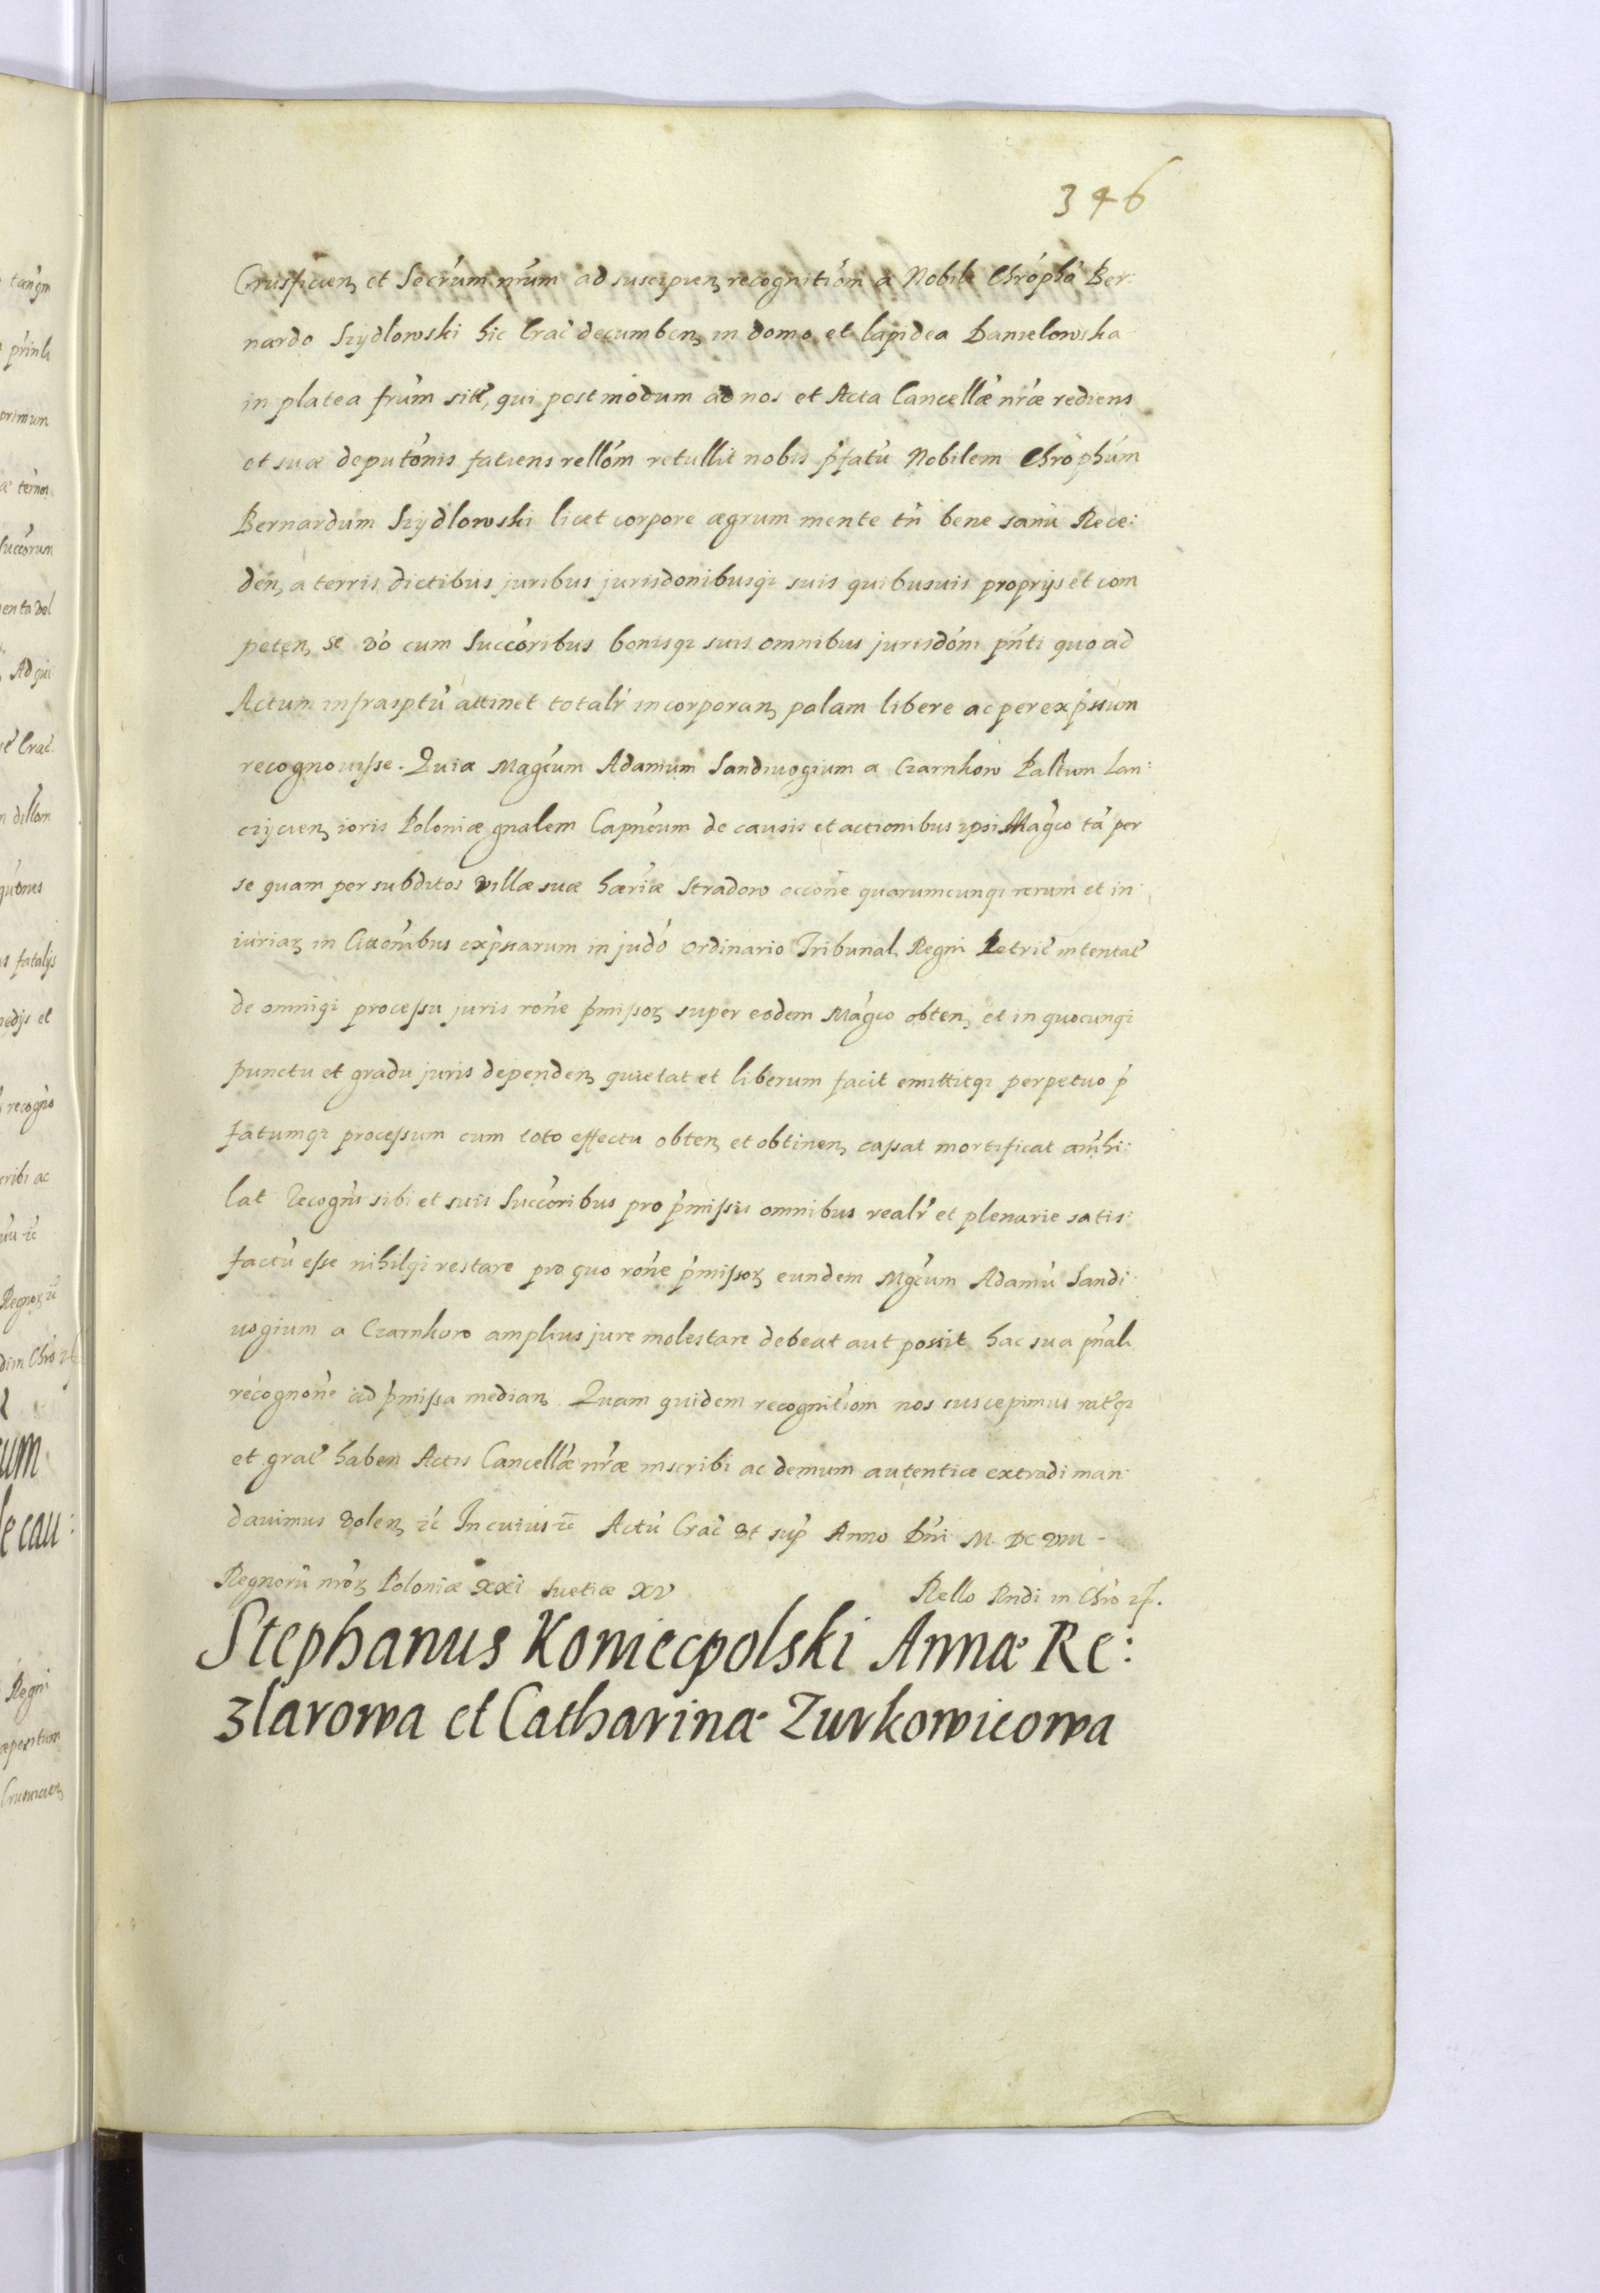 346
Crusficien et Secrum nrum ad suscipien recognitiom a Nobili Chropho Ber:
nardo Szydlowski hic Crac decumben in domo et lapidea Danielowska
in platea frum sitt, qui postmodum ad nos et Acta Cancellæ nræ rediens
et suæ deputonis faciens rellom retullit nobis pfatu Nobilem Chrophum
Bernardum Szydlowski licet corpore ægrum mente tn bene sanu Rece:
den a terris dictibus juribus jurisdonibusqz suis quibusuis proprijs et com
peten, se vo cum Succoribus bonisqz suis omnibus jurisdoni pnti quo ad
Actum infrasptu attinet totalr incorporan palam libere ac per expssum
recognouisse. Quia Magcum Adamum Sandiuogium a Czarnkow Paltum Lan:
czycien ioris Poloniæ gnalem Capneum de causis et actionibus ipsi Magco ta per
se quam per subditos villæ suæ hæriæ Stradow occone quarumcunqz rerum et in:
iuriaz in Citaonibus expssarum in judo Ordinario Tribunal Regni Petric intentat
de omniqz processu juris rone pmissoz super eodem Magco obten, et in quocunqz
punctu et gradu juris dependen quietat et liberum facit emittitqz perpetuo p
fatumqz processum cum toto effectu obten et obtinen, cassat mortificat annihi:
lat Recogns sibi et suis Succoribus pro pmissis omnibus realr et plenarie satis:
factu esse nihilqz restare pro quo rone pmissoz eundem Mgcum Adamu Sandi:
uogium a Czarnkow amplius jure molestare debeat aut possit hac sua pnali
recognone ad pmissa median. Quam quidem recognitiom nos suscepimus ratqz
et grat haben Actis Cancellæ nræ inscribi ac demum autentice extradi man:
dauimus volen, zc In cuius zc Actu Crac vt sup Anno Dni M. DC VIII -
Regnoru nroz Poloniæ XXI Suetiæ XV Rello Rndi in Chro
Stephanus Koniecpolski Anna Re:
zlarowa et Catharina Zurkowicowa